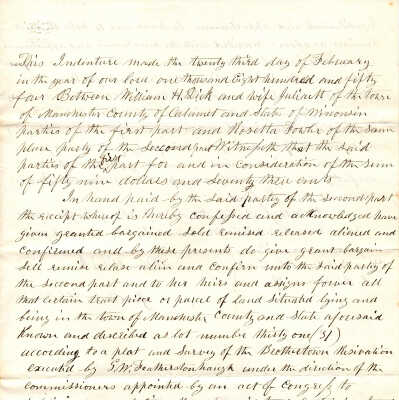 This Indenture made the twenty third day of February
in the year of our lord one thousand Eight hundred and fifty
four Between William H. Dick and wife Juliaett of the town
of Manchester County of Calumet and State of Wisconsin
parties of the first part and Rosetta Fowler of the same
place party of the second part Witnesseth that the said
parties of the first part for and in consideration of the sum
of fifty nine dolars and seventy three cents
In hand paid by the said partey of the second part
the receipt whereof is hereby confessed and acknowledged have
given granted bargained sold remised released aliened and
confirmed and by these presents do give grant bargain
sell remise release alien and confirm unto the said partey of
the second part and to her heirs and assigns forever all
that certain tract piece or parcel of land situated lying and
being in the town of Manchester County and state aforesaid
Known and described as lot number thirty one (31)
according to a plat and Survey of the Brothertown Reservation
executed by G. W. Featherstonhaugh under the direction of the
commissioners appointed by an act of Congress to